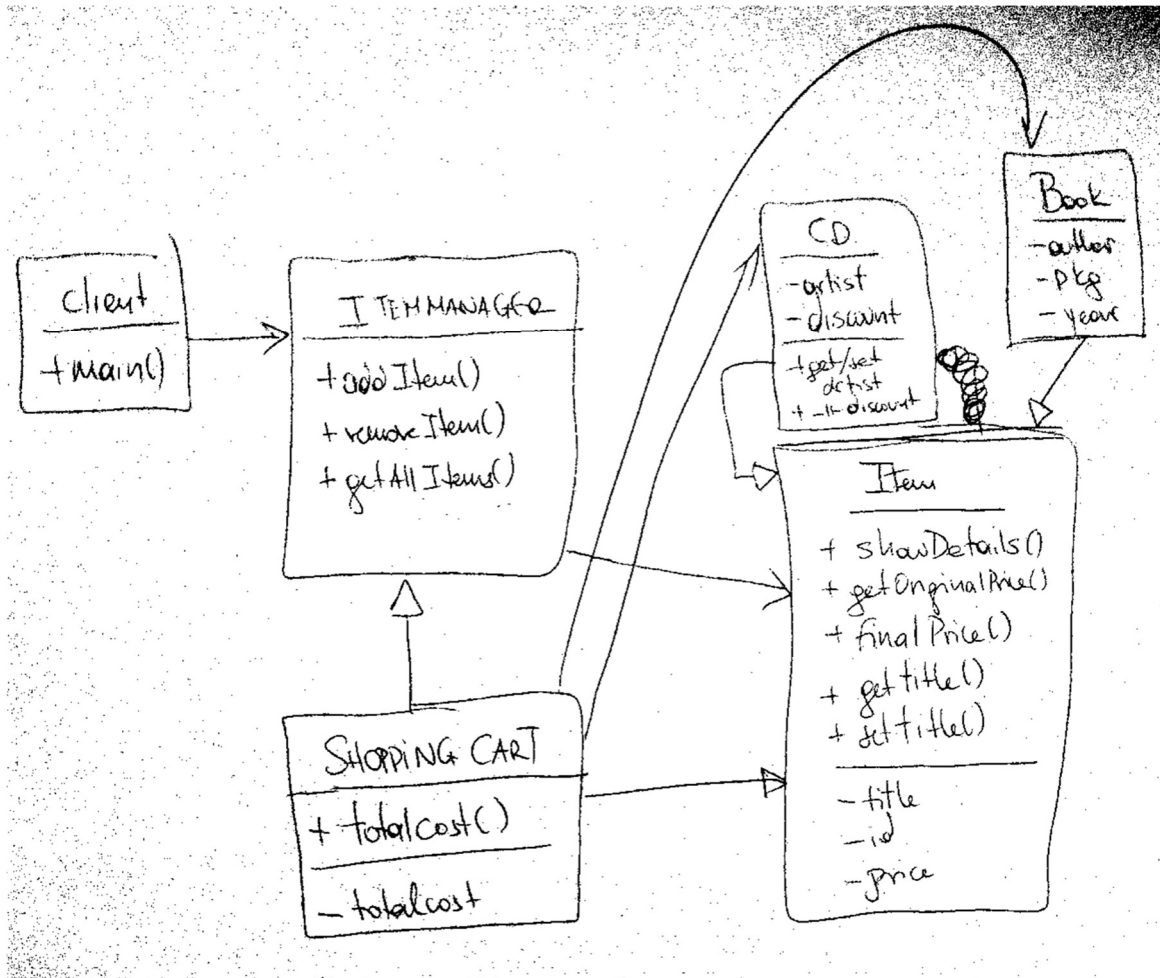 Client
+ main()
ITEMMANAGER
+ addItem()
+ removeItem()
+ getAllItems()
SHOPPING CART
+ totalcost()
- totalcost
CD
- artist
- discount
+ get/set
artist
+ -11- discount
Book
- author
- pkg
- year
Item
+ showDetails()
+ getOriginalPrice()
+ finalPrice()
+ gettitle()
+ settitle()
- title
- id
- price